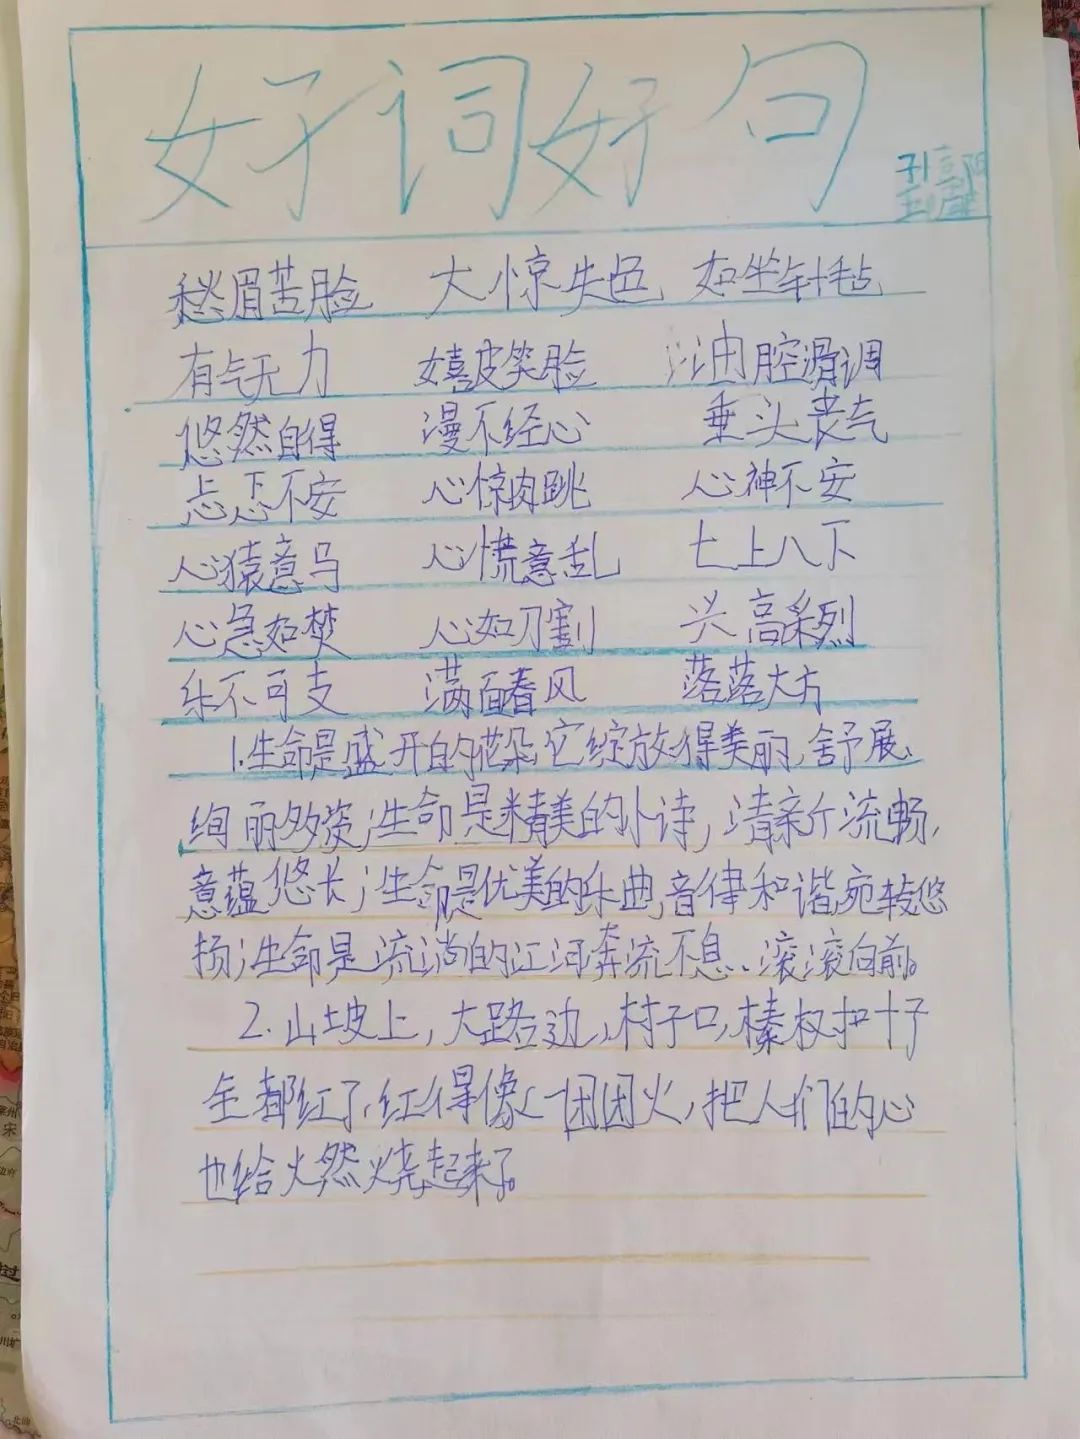 好词好句
愁眉苦脸 大惊失色 如坐针毡
有气无力 嬉皮笑脸 油腔滑调
悠然自得 漫不经心 垂头丧气
忐忑不安 心惊肉跳 心神不安
心猿意马 心慌意乱 七上八下
心急如焚 心如刀割 兴高采烈
乐不可支 满面春风 落落大方
1.生命是盛开的花朵,它绽放得美丽,舒展、
绚丽多资;生命是精美的小诗,清新流畅,
意蕴悠长;生命是优美的乐曲,音律和谐,宛转悠
扬;生命是流淌的江河奔流不息、滚滚向前。
2.山坡上,大路边,村子口,榛树叶子
全都红了,红得像一团团火,把人们的心
也给火然烧起来了。